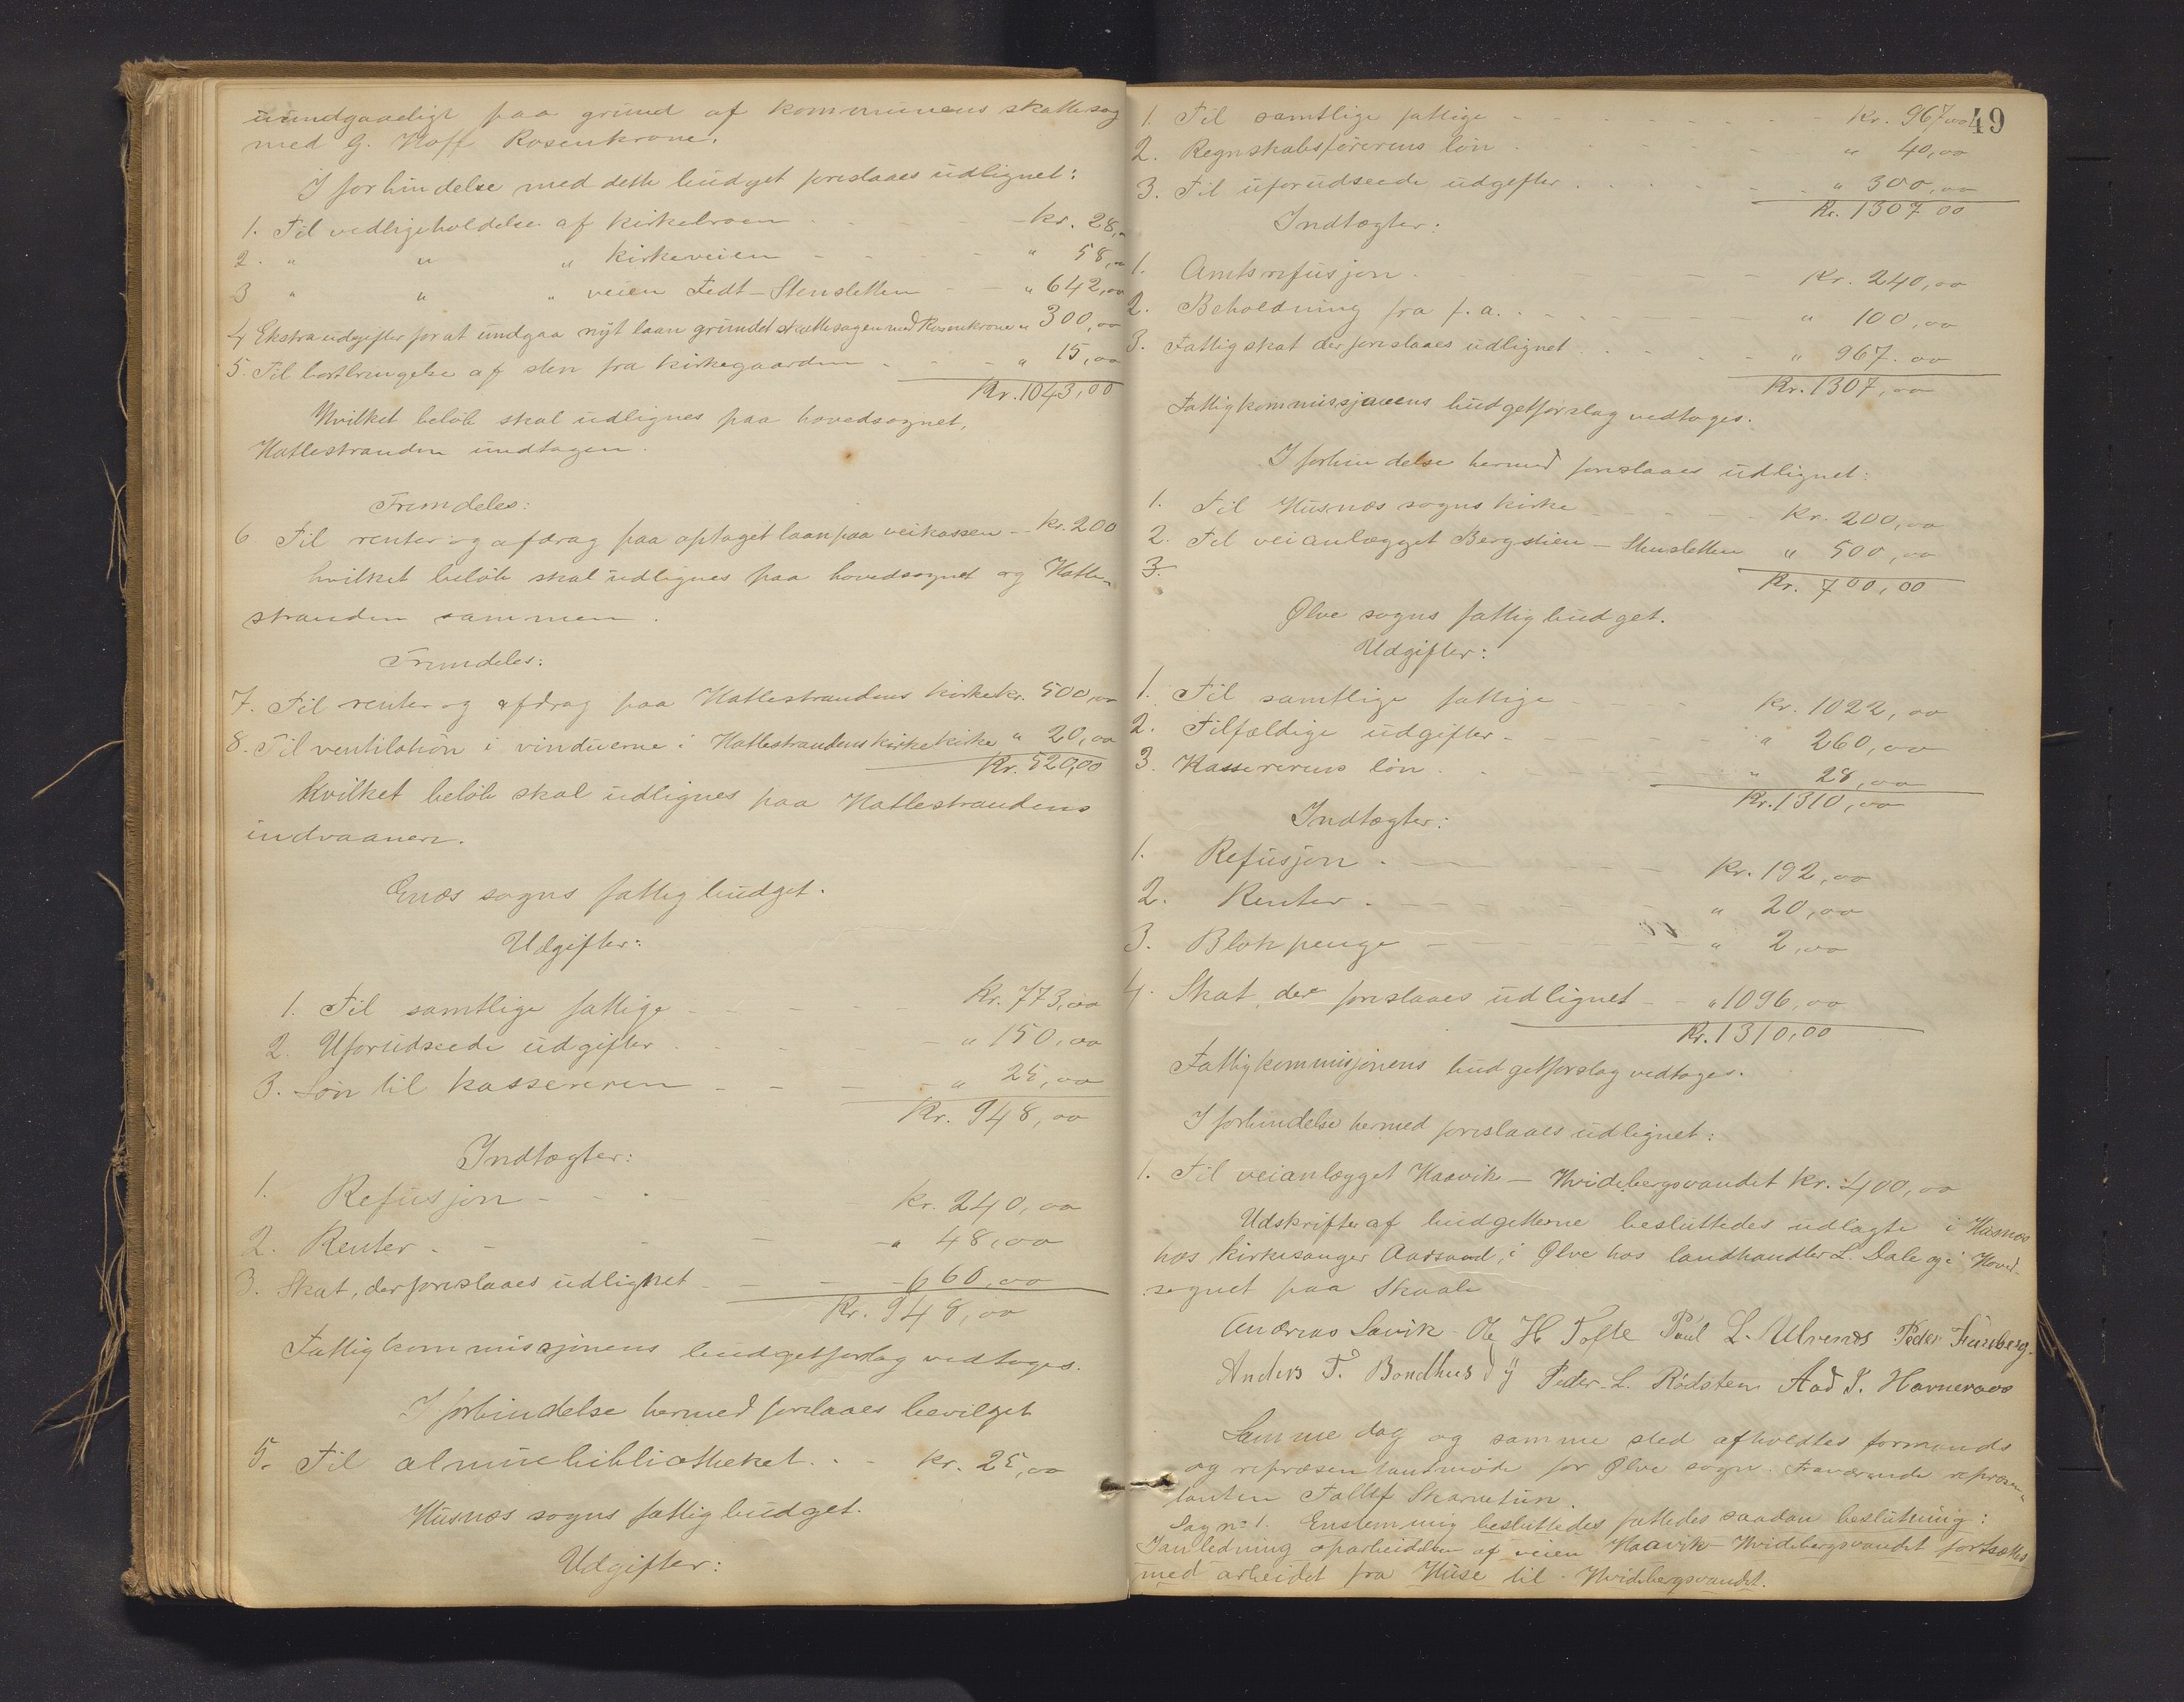 uundgaaeligt paa grund af kommunens skattesag
med G. Hoff Rosenkrone.
I forbindelse med dette budget foreslaaes udlignet:
1. Til vedligeholdelse af kirkebroen - - - kr. 28,
2. " " " kirkeveien - - - " 58,
3 " " " veien Tedt-Stensletten - - " 642,00
4 Ekstraudgifter for at undgaa nyt laan grundet skattesagen med Rosenkrone " 300,00
5. Til bortbringelse af sten fra kirkegaarden - - " 15,00
Kr. 1043,00
Hvilket beløb skal udlignes paa hovedsognet,
Hatlestranden undtagen.
Fremdeles:
6 Til renter og afdrag paa optaget laan paa veikassen - Kr. 200
hvilket beløb skal udlignes paa hovedsognet og Hatle-
stranden sammen.
Fremdeles:
7. Til renter og afdrag paa Hatlestrandens kirke kr. 500,00
8. Til ventilation i vinduerne i Hatlestrandens kirke kirke " 20,00
Kr. 520,00
Hvilket beløb skal udlignes paa Hatlestrandens
indvaanere.
Ænæs sogns fattigbudget.
Udgifter:
1. Til samtlige fattige - - - Kr. 773,00
2. Uforudseede udgifter - - - " 150,00
3. Løn til kassereren - - - " 25,00
Kr. 948,00
Indtægter:
1. Refusjon - - - Kr. 240,00
2. Renter - - - " 48,00
3. Skat, der foreslaaes udlignet - - - 660,00
Kr. 948,00
Fattigkommissjonens budgetforslag vedtoges.
I forbindelse hermed foreslaaes bevilget
5. Til almuebibliotheket. - - kr. 25,00
Husnæs sogns fattigbudget.
Udgifter:
49
1. Til samtlige fattige - - - Kr. 967,00
2. Regnskabsførerens løn - - - " 40,00
3. Til uforudseede udgefter - - - " 300,00
Kr. 1307 00
Indtægter:
1. Amtsrefusjon - - - Kr. 240,00
2. Beholdning fra f.a. - - - " 100,00
3. Fattigskat der foreslaaes udlignet - - - " 967.00
Kr. 1307,00
Fattigkommissjonens budgetforslag vedtoges.
I forbindelse hermed foreslaaes udlignet:
1. Til Husnæs sogns kirke - - - Kr. 200,00
2. Til veianlægget Bergstien - Stensletten " 500,00
3. Kr. 700,00
Ølve sogns fattigbudget.
Udgifter:
1. Til samtlige fattige - - - Kr. 1022,00
2. Tilfældige udgifter - - - " 260,00
3. Kassererens løn - - - " 28,00
Kr. 1310,00
Indtægter:
1. Refusjon - - - Kr. 192,00
2. Renter - - - " 20,00
3. Blokpenge - - - " 2,00
4. Skat, der foreslaaes udlignet - - " 1096,00
Kr. 1310,00
Fattigkommisjonens budgetforslag vedtoges.
I forbindelse hermed foreslaaes udlignet:
1. Til veianlægget Haavik - Hvidebergsvandet kr. 400,00
Udskrifter af budgetterne besluttedes udlagte i Husnæs
hos kirkesanger Aarsand, i Ølve hos landhandler L. Dale og i Hoved-
sognet paa Skaale
Andreas Løvik Ole H Tofte Paul L. Ulvenæs Peder Fureberg.
Anders T. Bondhus Peder L. Rødsten Aad P. Havneraas
Samme dag og samme sted afholdtes formands
og repræsentantmøde for Ølve sogn. Fraværende repræsen-
tanten Skarvetun.
Sag no 1. Enstemmig besluttedes fattedes saadan beslutning:
I anledning oparbeidelse af veien Haavik-Hvidebergsvandet fortsættes
med arbeidet fra Huse til Hvidebergsvandet.